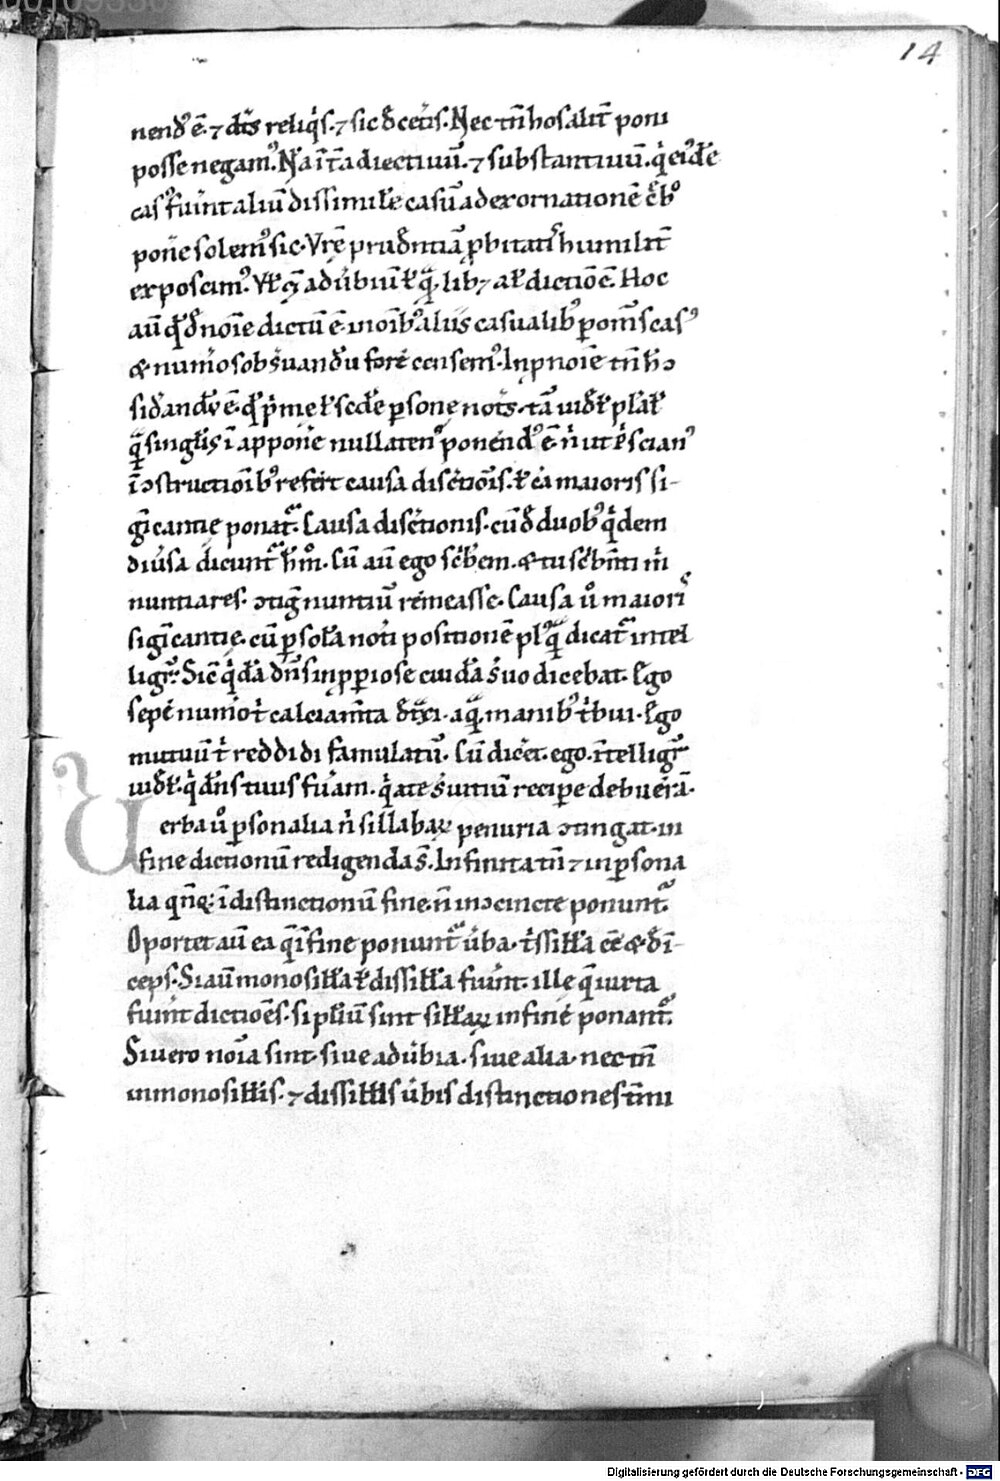 14
nendꝰ ē. ⁊ dc̄is reliq̇s. ⁊ sic đ cet̾is. Nec tn̄ hos alit̄ poni
posse negamꝰ. Nā int̄ adiectiuū. ⁊ substantiuū. q̇ eiꝰdē
casꝰ fuint aliū dissimilē casū ad exornationē
pone solemꝰ sic. Vr̄ē prudentiā p̱bitatis humilit̄
exposcimꝰ. adu̾biū
aū nōie dictū ē. in oīb; aliis casualib; ꝑ om̄s casꝰ
& num̾os obs̾uandū fore censemꝰ. In pronōie tn̄
sidandū ē. ꝙ p̾me ł scđe ꝑsonę not̄s. tā
singł̄is ī appone nullatenꝰ ponendꝰ ē. n̄ ut
ī ꝯstructioīb; refert causa disc̾tiōis. ł cā maioris si-
gīcantię ponat̃. Causa disc̾tionis. cū đ duob; q̇dem
diu̾sa dicunt̃ hm̊. Cū aū ego sc̾bem. & tu m̊
nuntiares. ꝯtig̃ nuntiū remeasse. Causa u̾o maioris
sigīcantię. cū ꝑ solā noti positionē dicat̃ intel
ligi. Sic q̇dā dn̄s inꝓperiose cuidā s̾uo dicebat. Ego
sepe num̾o t̾ calciam̄ta aquā manib; t̾bui. Ego
mutuū t̾ reddidi famulatū. Cū dic̾et. ego. ītelligi
uidet̄. q̇ dn̄s tuus fu̾am. q̇ a te s̾uitiū recipe debueram.
Verba u̾o ꝑsonalia n̄ sillabaꝝ penuria ꝯtingat. in
fine dictionū redigenda s̄. Infinita tn̄ ⁊ inꝑsona
lia ī distinctionū fine. n̄ inꝯcinne ponunt̃.
Oportet aū ea q̄ ī fine ponunt̃ u̾ba. t̾ssiłła eē & đī-
ceps. Si aū monosiłła ł dissiłła fuint. ille q̄ iuxta
fuint dictioēs. si pluriū sint siłłaꝝ in fine ponant̃.
Si uero noīa sint. siue adu̾bia. siue alia. nec tn̄
in monosiłłis. ⁊ dissiłłis u̾bis distinctiones t̾mi
Digitalisierung gefördert durch die Deutsche Forschungsgemeinschaft - DFG